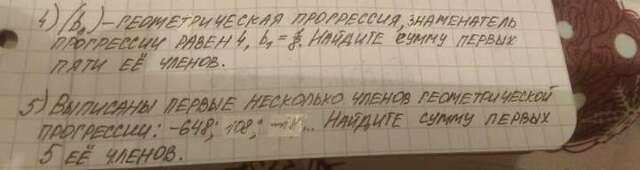 4) (bₙ) – ГЕОМЕТРИЧЕСКАЯ ПРОГРЕССИЯ, ЗНАМЕНАТЕЛЬ
ПРОГРЕССИИ РАВЕН 4, b₁ = НАЙДИТЕ СУММУ ПЕРВЫХ
ПЯТИ ЕЁ ЧЛЕНОВ.
5) ВЫПИСАНЫ ПЕРВЫЕ НЕСКОЛЬКО ЧЛЕНОВ ГЕОМЕТРИЧЕСКОЙ
ПРОГРЕССИИ: -648; 108; -18;... НАЙДИТЕ СУММУ ПЕРВЫХ
5 ЕЁ ЧЛЕНОВ.